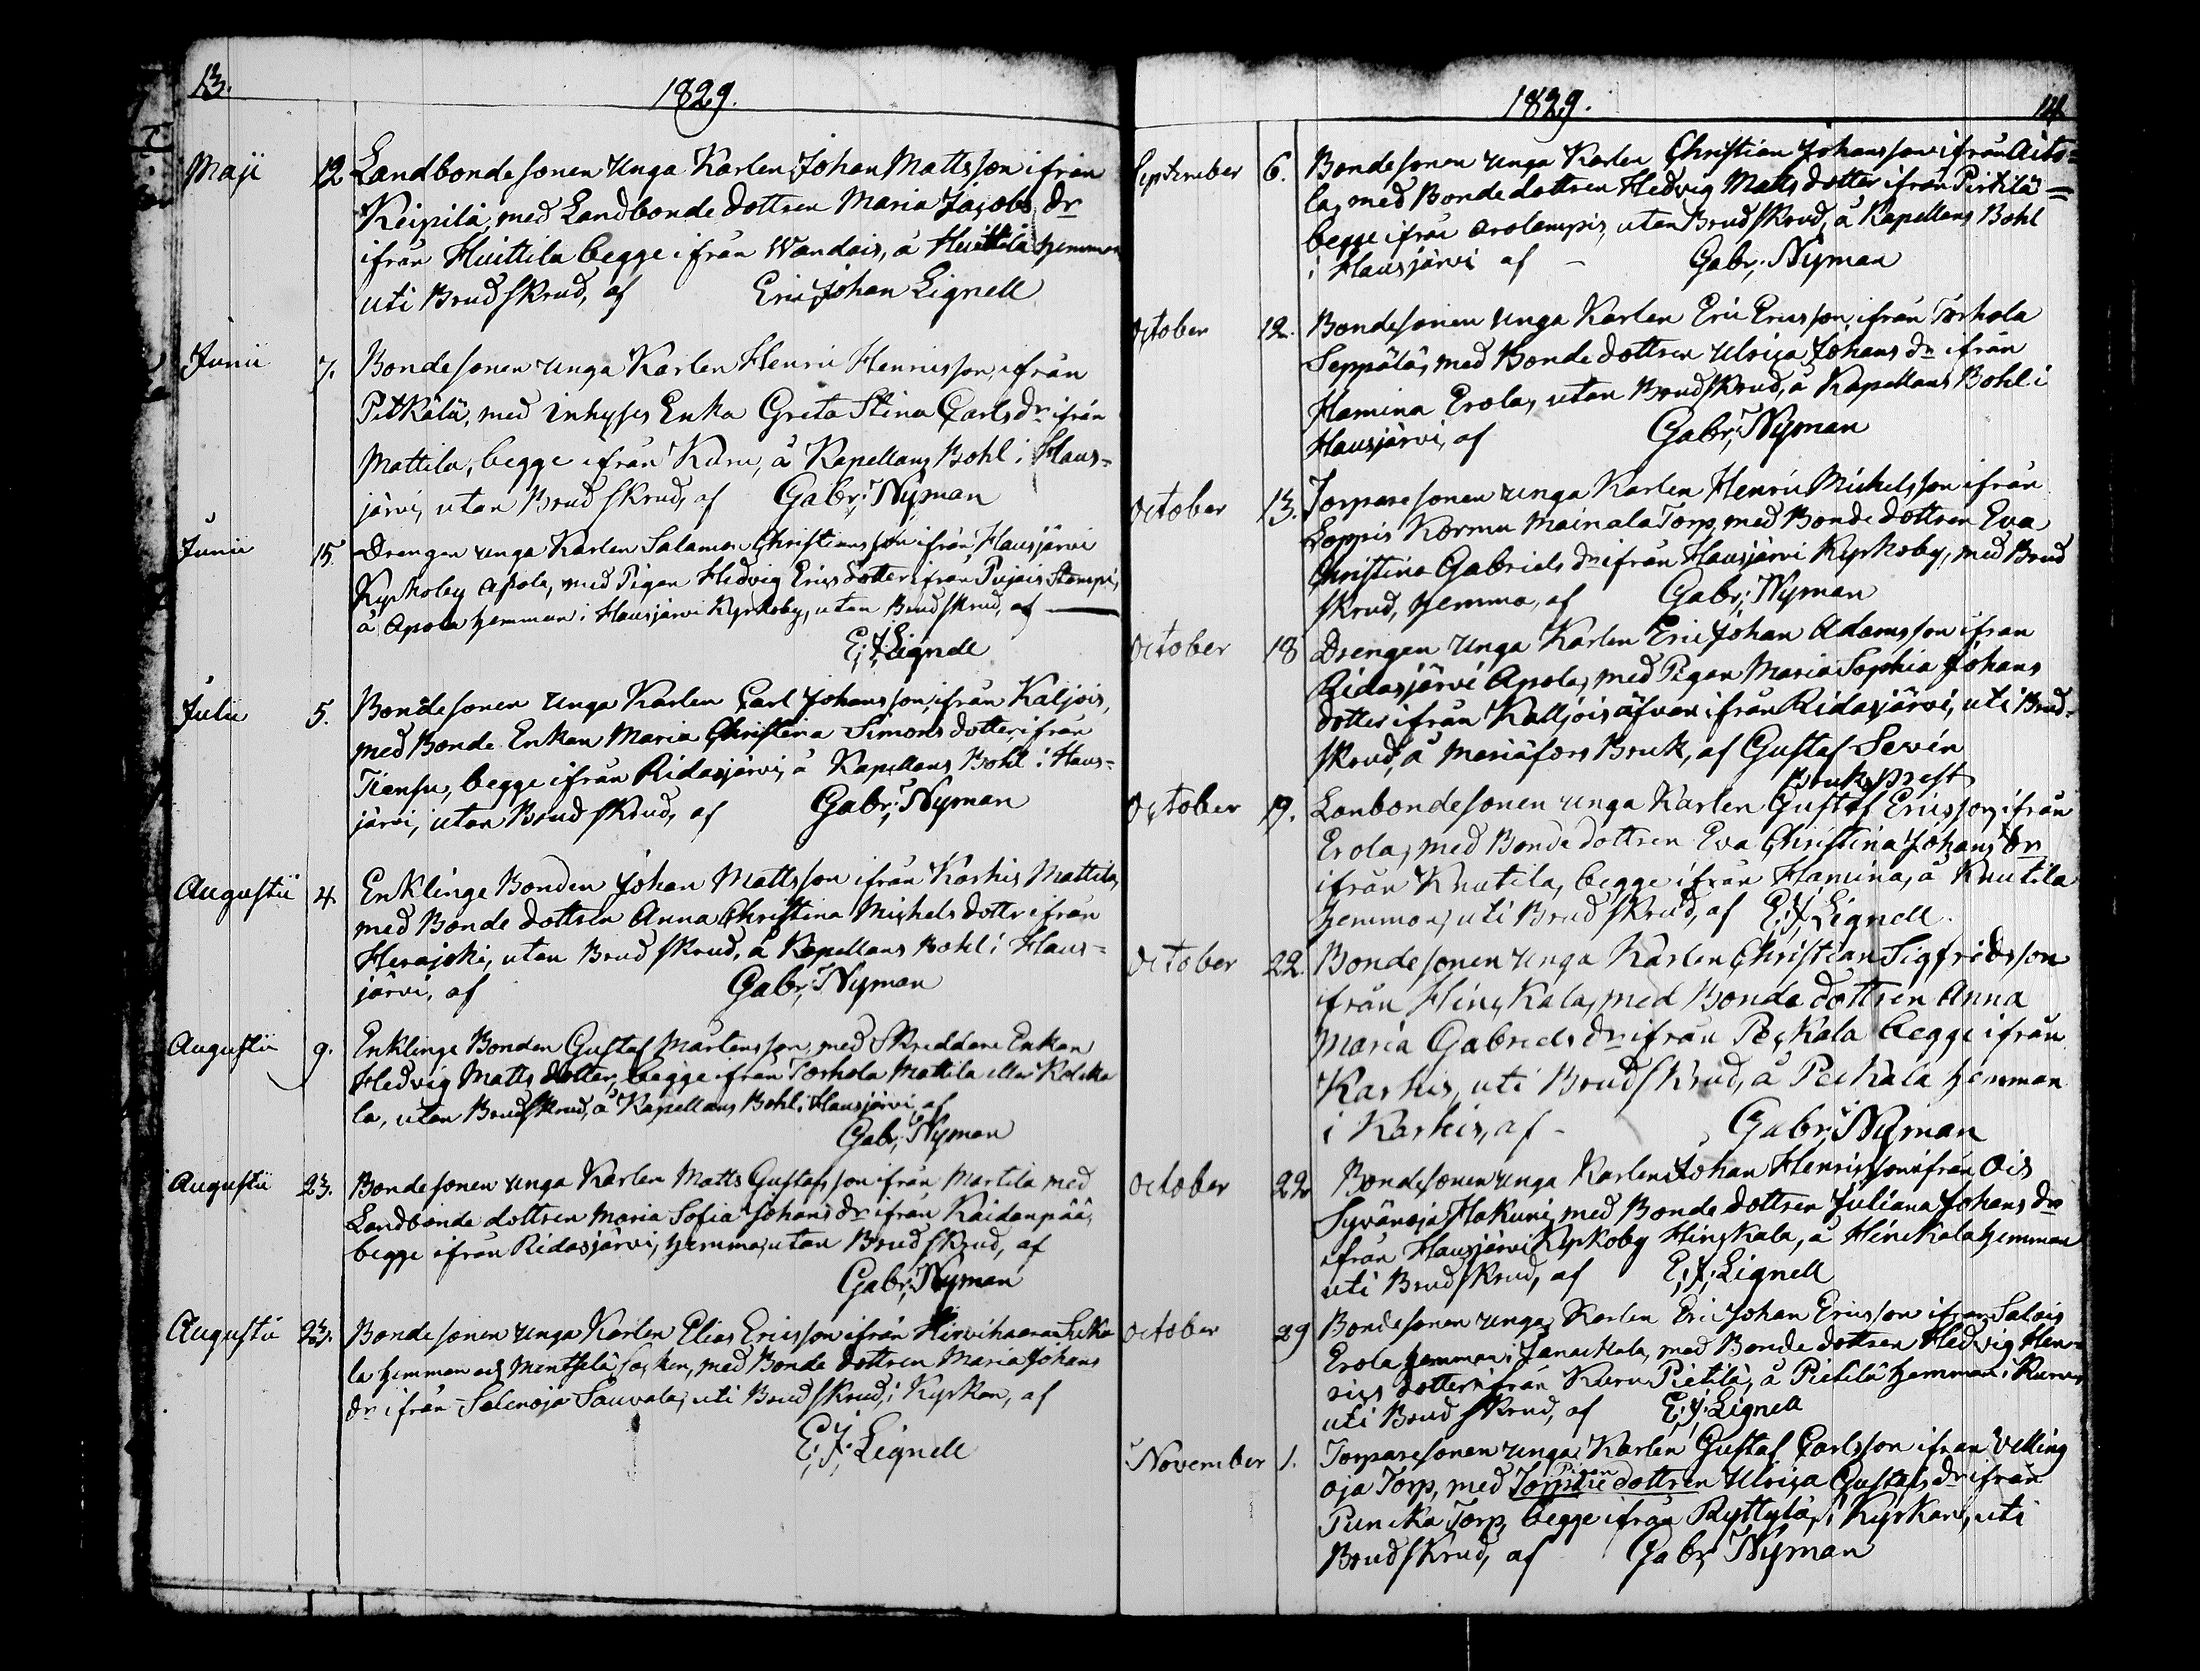 13.
1829.
Maji 12 Landbondesonen Unga Karlen Johan Mattsson ifrån
Keipilä, med Landbonde dottren Maria Jacobs dr
ifrån Huittila begge ifrån Wandais, å Huittila hemman
uti Brudskrud, af Eric Johan Lignell
Junii 7. Bondesonen unga Karlen Henric Henricsson, ifrån
Pitkälä, med Inhyses Enka Greta Stina Carls dr ifrån
Mattila, begge ifrån Kuru, å Kapellans Bohl i Haus-
järvi, utan Brudskrud, af Gabr: Nyman
Junii 15. Drengen unga Karlen Salamon Christiansson ifrån Hausjärvi
Kyrkoby Apola, med Pigan Hedvig Erics dotter ifrån Pujais Stampi,
å Apola hemman i Hausjärvi Kyrkoby, utan Brudskrud, af
E: J: Lignell
Julii 5. Bondesonen unga Karlen Carl Johansson, ifrån Kaljois,
med Bonde Enkan Maria Christina Simons dotter, ifrån
Tiensu, begge ifrån Ridasjärvi, å Kapellans Bohl i Haus-
järvi, utan Brudskrud, af Gabr: Nyman
Augustii 4 Enklinge Bonden Johan Mattsson ifrån Karhis Mattila,
med Bonde dottren Anna Christina Michels dottr ifrån
Herajoki, utan Brudskrud, å Kapellans Bohl i Haus-
järvi, af Gabr: Nyman
Augustii 9. Enklinge Bonden Gustaf Mårtensson, med Skreddare Enkan
Hedvig Matts dotter, begge ifrån Torhola Mattila eller Kolcka
la, utan Brudskrud, å Kapellans Bohl i Hausjärvi, af
Gabr: Nyman
Augustii 23. Bondesonen unga Karlen Matts Gustafsson ifrån Martila med
Landbonde dottren Maria Sofia Johans dr ifrån Kaidanpää,
begge ifrån Ridasjärvi, hemma, utan Brudskrud, af
Gabr: Nyman
Augustii 23. Bondesonen unga Karlen Elias Ericsson ifrån Hirvihaara
la hemman och Mentselä Socken, med Bonde dottren Maria Johans
dr ifrån Selenoja Sauvala, uti Brudskrud, i Kyrkan, af
E: J: Lignell
1829.
14
September 6. Bondesonen unga Karlen Christian Johansson ifrån Aito-
la, med Bonde dottren Hedvig Matts dotter ifrån Pirtilä
begge ifrån Arolampis, utan Brudskrud, å Kapellans Bohl
i Hausjärvi af - Gabr: Nyman
October 12. Bondesonen unga Karlen Eric Ericsson, ifrån Torhola
Seppälä, med Bonde dottren Ulrica Johans dr ifrån
Hamina Erola, utan Brudskrud, å Kapellans Bohl i
Hausjärvi, af Gabr: Nyman
October 13. Torparesonen unga Karlen Henric Michelsson ifrån
Loppis Kormu Mainala Torp, med Bonde dottren Eva
Christina Gabriels dr ifrån Hausjärvi Kyrkoby, med Brud
skrud, hemma, af Gabr: Nyman
October 18 Drengen Unga Karlen Eric Johan Adamsson ifran
Ridasjärvi Apola, med Pigan Maria Sophia Johans
dotter ifrån Kalljois äfven ifrån Ridasjärvi, uti Brud-
skrud, å Mariäfors Bruk, af Gustaf Sevén
Bruks prest
October 19. Lanbondesonen unga Karlen Gustaf Ericsson, ifrån
Erola, med Bonde dottren Eva Christina Johans dr
ifrån Knutila, begge ifrån Hamina, å Knutila
hemman, uti Brudskrud, af E: J: Lignell.
October 22. Bondesonen unga Karlen Christian Sigfridsson
ifrån Hinckala, med Bonde dottren Anna
Maria Gabriels dr ifrån Peckala begge ifrån
Karhis, uti Brudskrud, å Peckala hemman
i Karhis, af - Gabr: Nyman
October 22 Bondesonen unga Karlen Johan Henricsson ifrån Ois
Syvänoja Hakuni, med Bonde dottren Juliana Johans dr
ifrån Hausjärvi Kyrkoby Hinckala, å Hinckala hemman
uti Brudskrud, af E: J: Lignell
October 29 Bondesonen unga Karlen Eric Johan Ericsson ifran Salois
Erola hemman i Janackala, med Bonde dottren Hedvig Hen-
rics dotter ifrån Kuru Pietilä, å Pietilä hemman i Kuru
uti Brudskrud, af E: J: Lignell
November 1. Torparesonen unga Karlen Gustaf Carlsson ifran Velling
oja Torp, med Torpare dottren Pigan Ulrica Gustafs dr ifrån
Punicka Torp, begge ifrån Ryttylä, i Kyrkan, uti
Brudskrud, af Gabr: Nyman